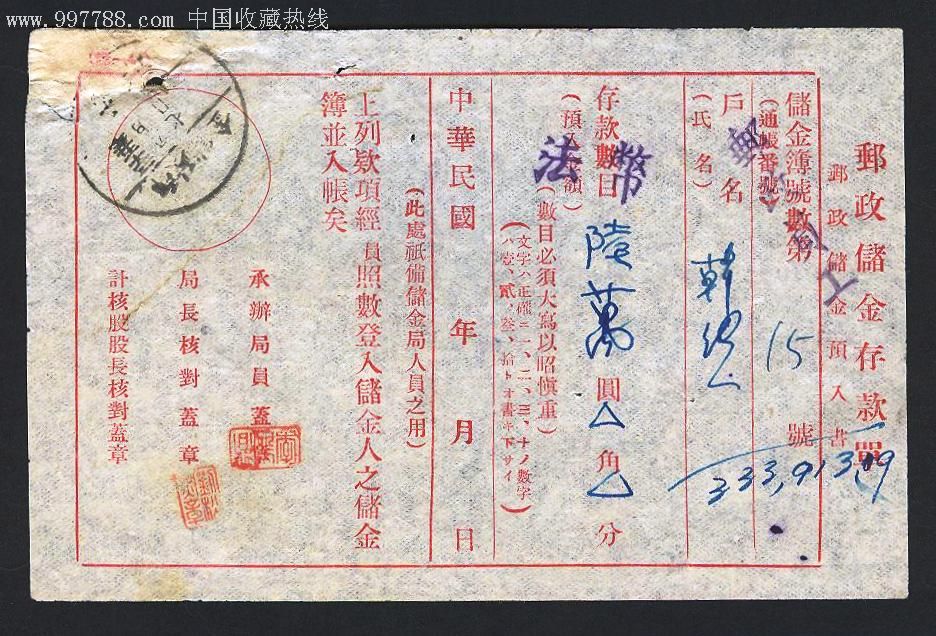 www.997788.com 中国收藏热线
郵政儲金存款單
郵政儲金預入書
儲金簿號數第 15 號
(通帳番號)
333,913.09
戶名
(氏名)
韓
法幣
存款數目 陸萬圓△角△分
(預入金額)
(數目必須大寫以昭慎重)
(文字ハ正確ニ一、二、三、十ノ數字
ハ壹、貳、叁、拾トオ書キ下サイ)
中華民國 年 月 日
(此處祇備儲金局人員之用)
上列欵項經員照數登入儲金人之儲金
簿並入帳矣
承辦局員蓋章
局長核對蓋章
計核股股長核對蓋章